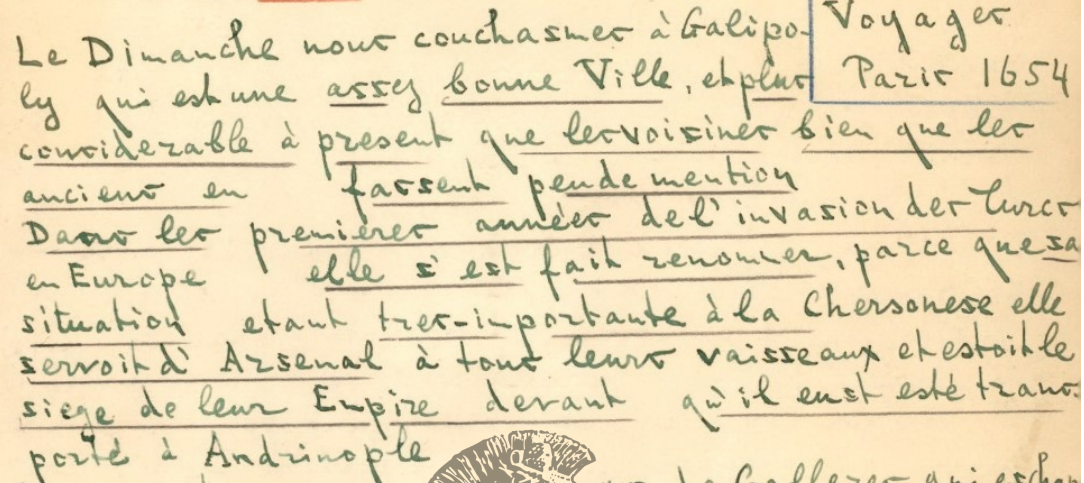 Voyages
Paris 1654
Le Dimanche nous couchasmes à Galipo-
ly qui est une assez bonne Ville, et plus
considerable à present que les voisines bien que les
anciens en fassent peu de mention
Dans les premières années de l'invasion des Turcs
en Europe elle s'est fait renommer, parce que sa
situation etant tres-importante à la Chersonese elle
servoit d'Arsenal à tous leurs vaisseaux et estoit le
siege de leur Empire devant qu'il eust esté trans-
porté à Andrinople
qui